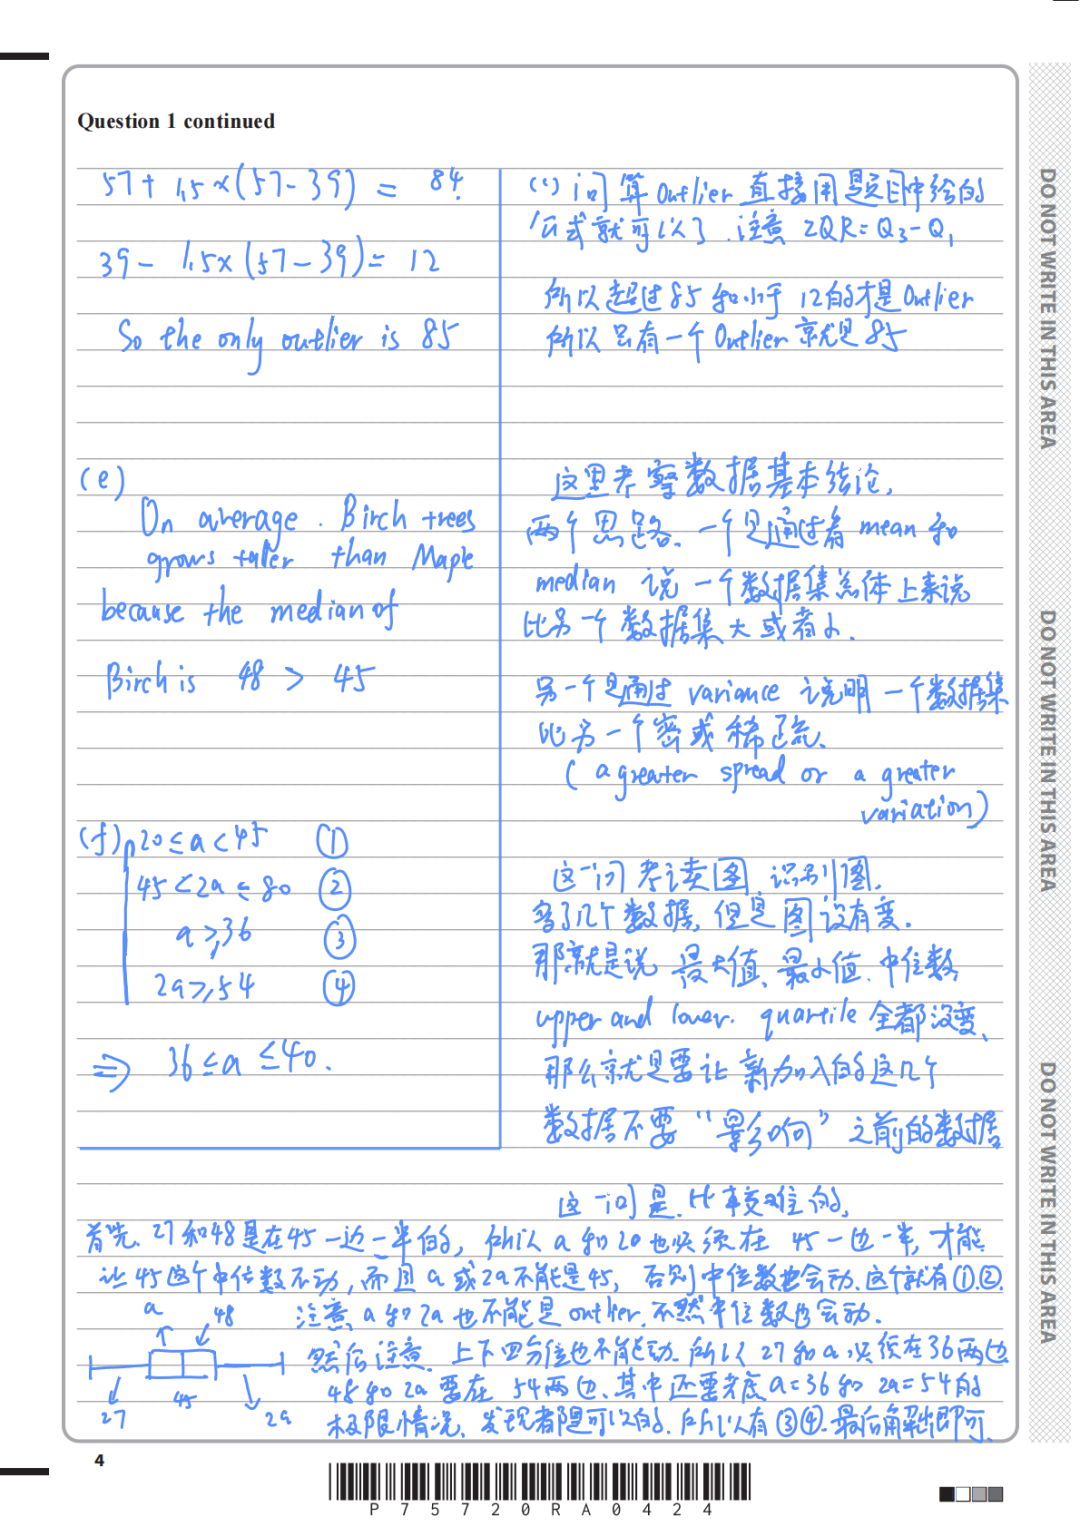 Question 1 continued
57 + 1.5 × (57 - 39) = 84
39 - 1.5 × (57 - 39) = 12
So the only outlier is 85
(i) 问算 Outlier 直接用题目中给的
公式就可以了. 注意 IQR = Q₃ - Q₁
所以超过 85 和小于 12 的才是 Outlier
所以只有一个 Outlier 就是 85
(e)
On average. Birch trees
grows taller than Maple
because the median of
Birch is 48 > 45
这里考察数据基本结论,
两个思路、一个是通过看 mean 和
median 说一个数据集总体上来说
比另一个数据集大或者小.
另一个是通过 variance 说明一个数据集
比另一个密或稀疏、
( a greater spread or a greater
variation)
(f) 20 ≤ a < 45 ①
45 < 2a ≤ 80 ②
a ≥ 36 ③
2a ≥ 54 ④
⇒ 36 ≤ a ≤ 40.
这一问考读图 识别图,
多了几个数据, 但是图没有变.
那就是说 最大值、最小值. 中位数
upper and lower. quartile 全都没变、
那么就是要让 新加入的这几个
数据不要“影响”之前的数据
这一问是比较难的,
首先、27 和 48 是在 45 一边一半的, 所以 a 和 2a 也必须在 45 一边一半, 才能
让 45 这个中位数不动, 而且 a 或 2a 不能是 45, 否则中位数也会动. 这个就有①.②.
注意 a 和 2a 也不能是 outlier. 不然中位数也会动.
然后注意. 上下四分位也不能动. 所以 27 和 a 必须在 36 两边
48 和 2a 要在 54 两边、其中还要考虑 a = 36 和 2a = 54 的
极限情况、发现都是可以的. 所以有③④. 最后解出即可.
a
48
45
27
2a
4
P75720RA0424
DO NOT WRITE IN THIS AREA
DO NOT WRITE IN THIS AREA
DO NOT WRITE IN THIS AREA